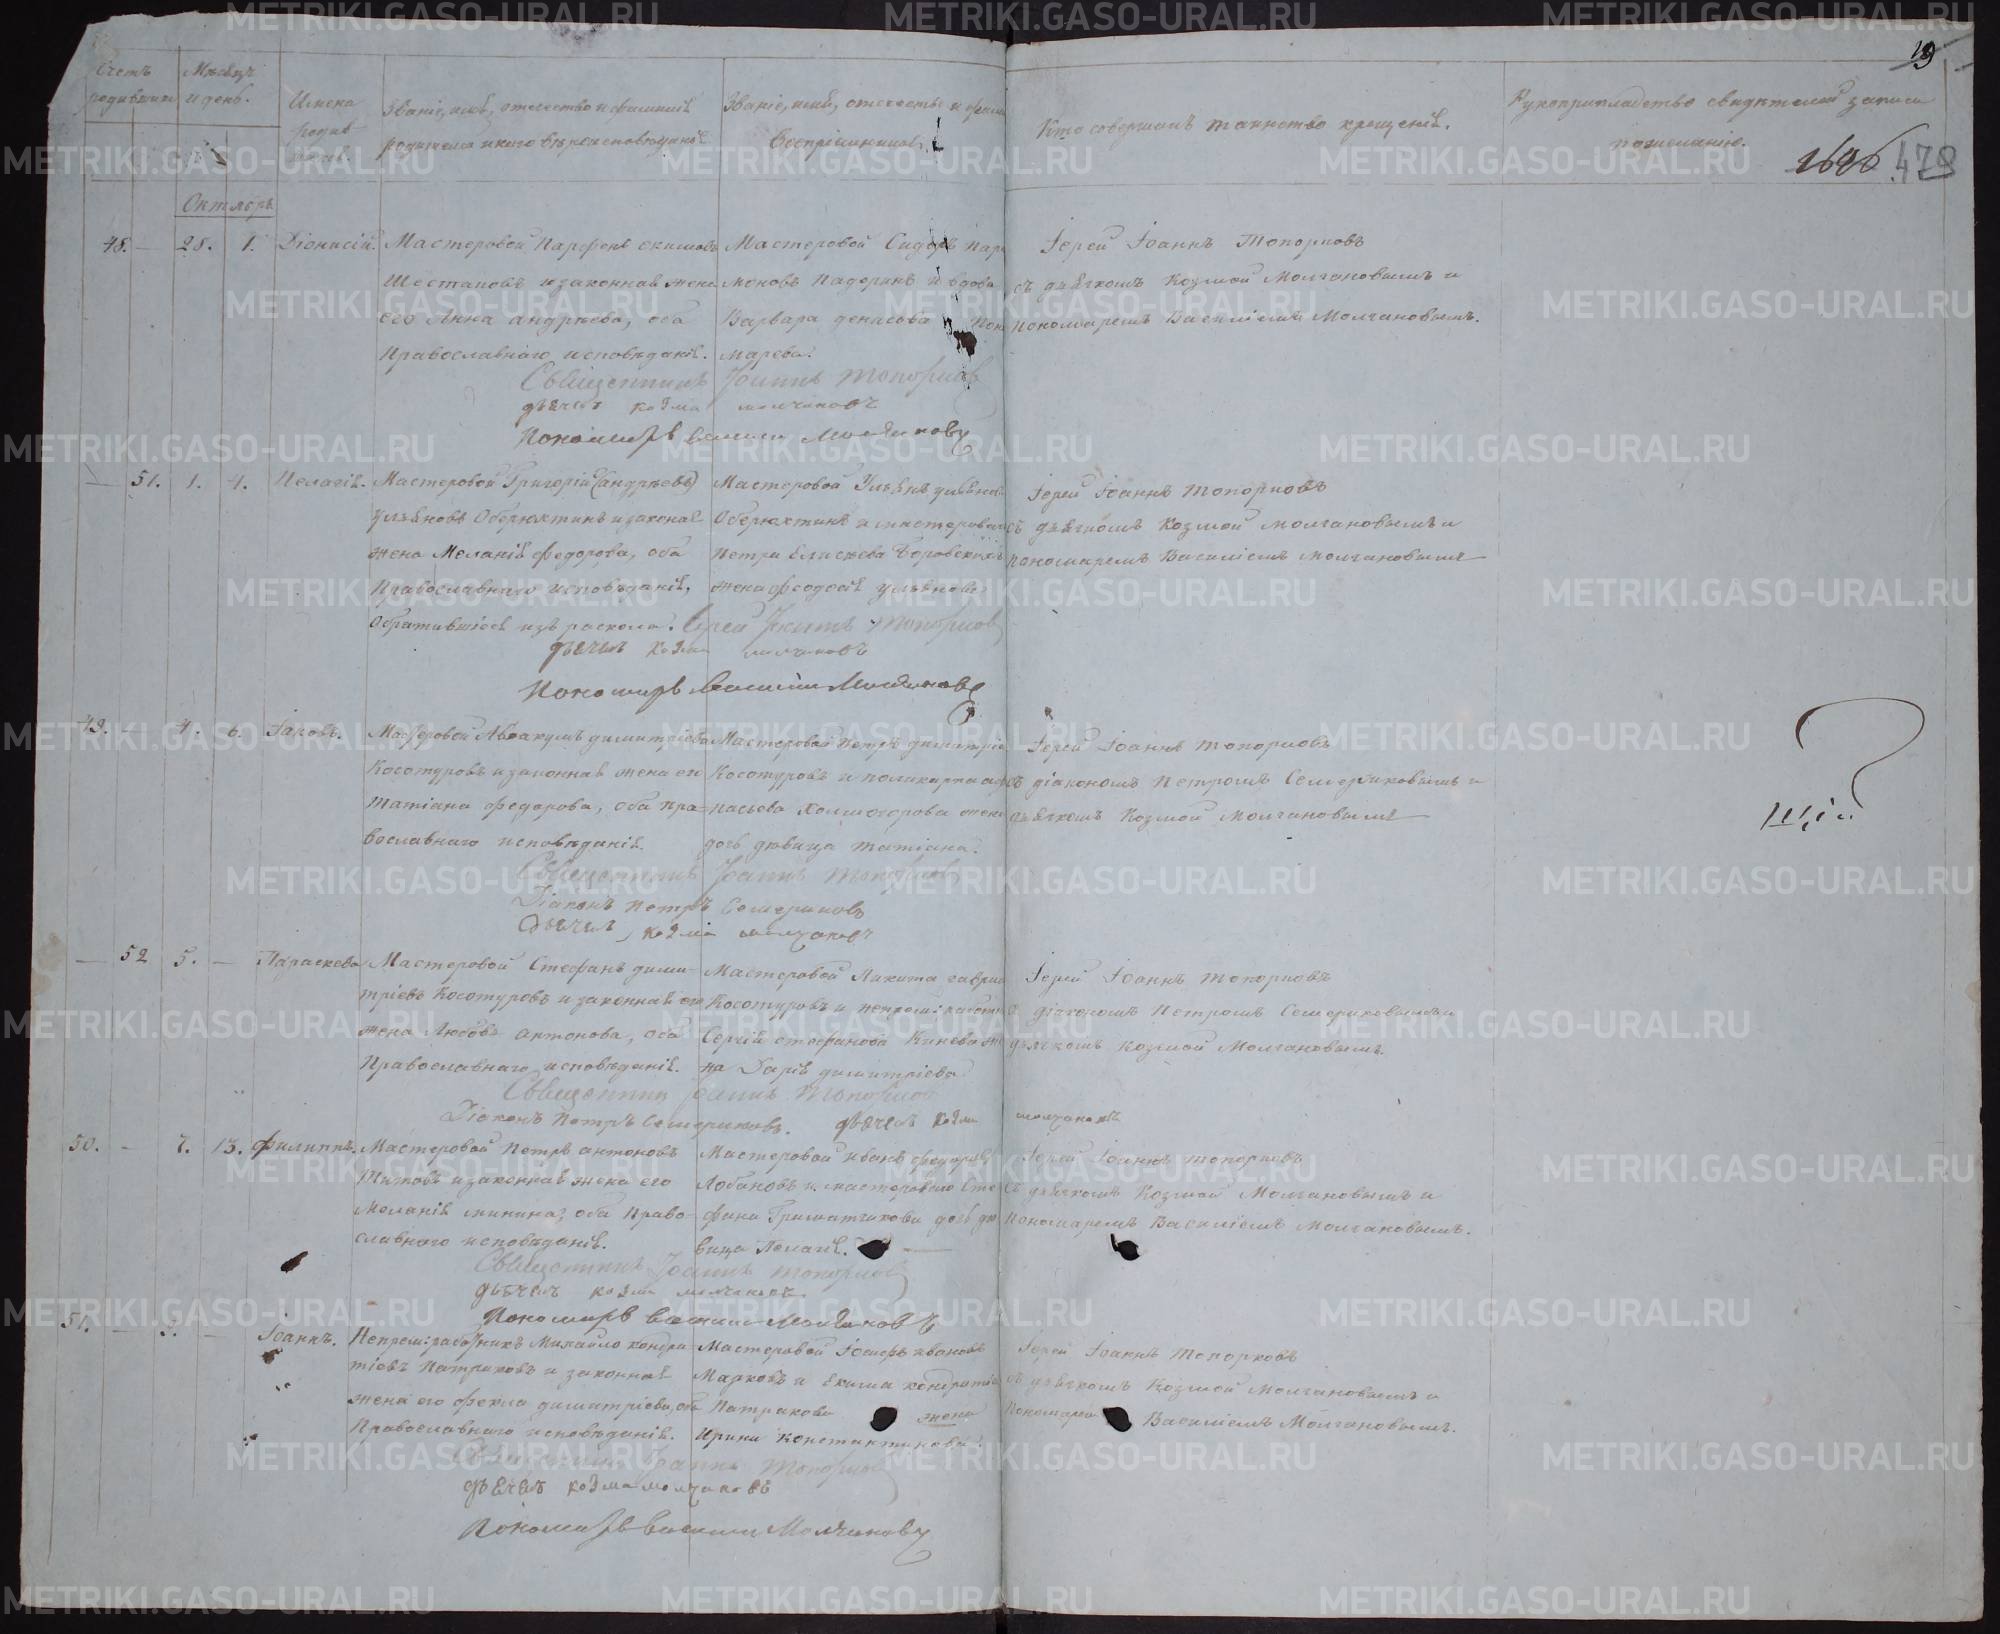 19
Счетъ родившихся
Мѣсяцъ и день.
Имена родив-
Званіе, имя, отечество и фамилія
родителей и какого вѣроисповѣданія
Званіе, имя, отечество и фами
Воспріемниковъ.
Кто совершалъ таинство крещенія.
Рукоприкладство свидѣтелей записи
по желанію.
1686 478
Октябрь
48. — 28. 1. Діонисій.
Мастеровой Парфенъ екимовъ
Шестаковъ и законная жена
его Анна андрѣева, оба
Православнаго исповѣданія.
Мастеровой Сидоръ пар
моновъ Падеринъ и вдова
Варвара денисова Поно
марева.
Іерей Іоаннъ Топорковъ
съ дьячкомъ Козмой Молчановымъ и
пономаремъ Василіемъ Молчановымъ.
Священникъ Іоаннъ Топорковъ
дьячекъ козма молчановъ
Пономарь василий Молчановъ
— 51. 1. 4. Пелагія.
Мастеровой Григорій (андрѣевъ)
Ульяновъ Оберюхтинъ и законая
жена Меланія федорова, оба
Православнаго исповѣданія,
Обратившіеся изъ раскола.
Мастеровой Ульянъ ульянов
Оберюхтинъ и мастероваго
Петра Елисѣева Боровскихъ
жена феодосія ульянова
Іерей Іоаннъ Топорковъ
съ дьячкомъ Козмой молчановымъ и
пономаремъ Василіемъ молчановымъ
Іерей Іоаннъ Топорковъ
дьячекъ козма молчановъ
Пономарь Василий Молчановъ
49. — 4. 6. Іаковъ.
Мастеровой Авакумъ димитріевъ
Косотуровъ и законная жена его
Татіана федорова, оба пра-
вославнаго исповѣданія.
Мастеровой Петръ димитріе
Косотуровъ и поликарпа афа
насьева Холмогорова
дочь дѣвица татіана.
Іерей Іоаннъ Топорковъ
съ діакономъ Петромъ Семериковымъ и
дьячкомъ Козмой Молчановымъ
Священникъ Іоаннъ Топорковъ
Діаконъ Петръ Семериковъ
Дьячекъ козма молчановъ
— 52 5. — Параскева
Мастеровой Стефанъ дими-
тріевъ Косотуровъ и законная его
жена Любовь антонова, оба
Православнаго исповѣданія.
Мастеровой Никита гаври
Косотуровъ и непрем: работн
Сергія стефанова Кинева же
на Дарія димитріева
Іерей Іоаннъ Топорковъ
съ діакономъ Петромъ Семериковымъ и
дьячкомъ козмой Молчановымъ.
Священникъ Іоаннъ Топорковъ
Діаконъ Петръ Семериковъ. дьячекъ козма молчановъ
50. — 7. 13. Филиппъ.
Мастеровой Петръ антоновъ
Титовъ и законная жена его
Меланія минина, оба Право-
славнаго исповѣданія.
Мастеровой иванъ федоровъ
Лобановъ и мастероваго Сте
фана дочь дѣ
вица Пелагія.
Іерей Іоаннъ топорковъ
съ дьячкомъ Козмой Молчановымъ и
Пономаремъ Василіемъ Молчановымъ.
Священникъ Іоаннъ Топорковъ
дьячекъ козма молчановъ
Пономарь василий Молчановъ
51. — — Іоаннъ.
Непрем: работникъ Михайло кондра
тіевъ Патраковъ и законная
жена его Фекла димитріева, оба
Православнаго исповѣданія.
Мастеровой Іосифъ ивановъ
Марковъ и Екима кондратіе
Патракова жена
Ирина константинова.
Іерей Іоаннъ Топорковъ
съ дьячкомъ Козмой Молчановымъ и
Пономаремъ Василіемъ Молчановымъ.
Священникъ Іоаннъ Топорковъ
дьячекъ козма молчановъ
Пономарь василий Молчановъ
METRIKI.GASO-URAL.RU